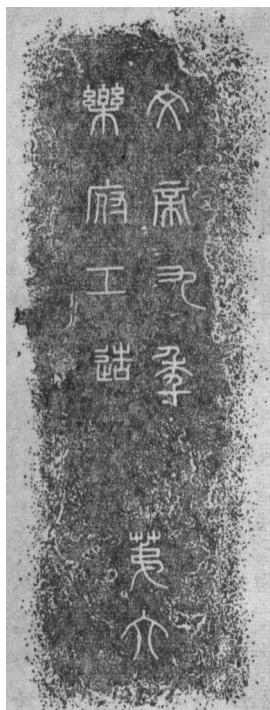 文帝九年
樂府工造
苐六